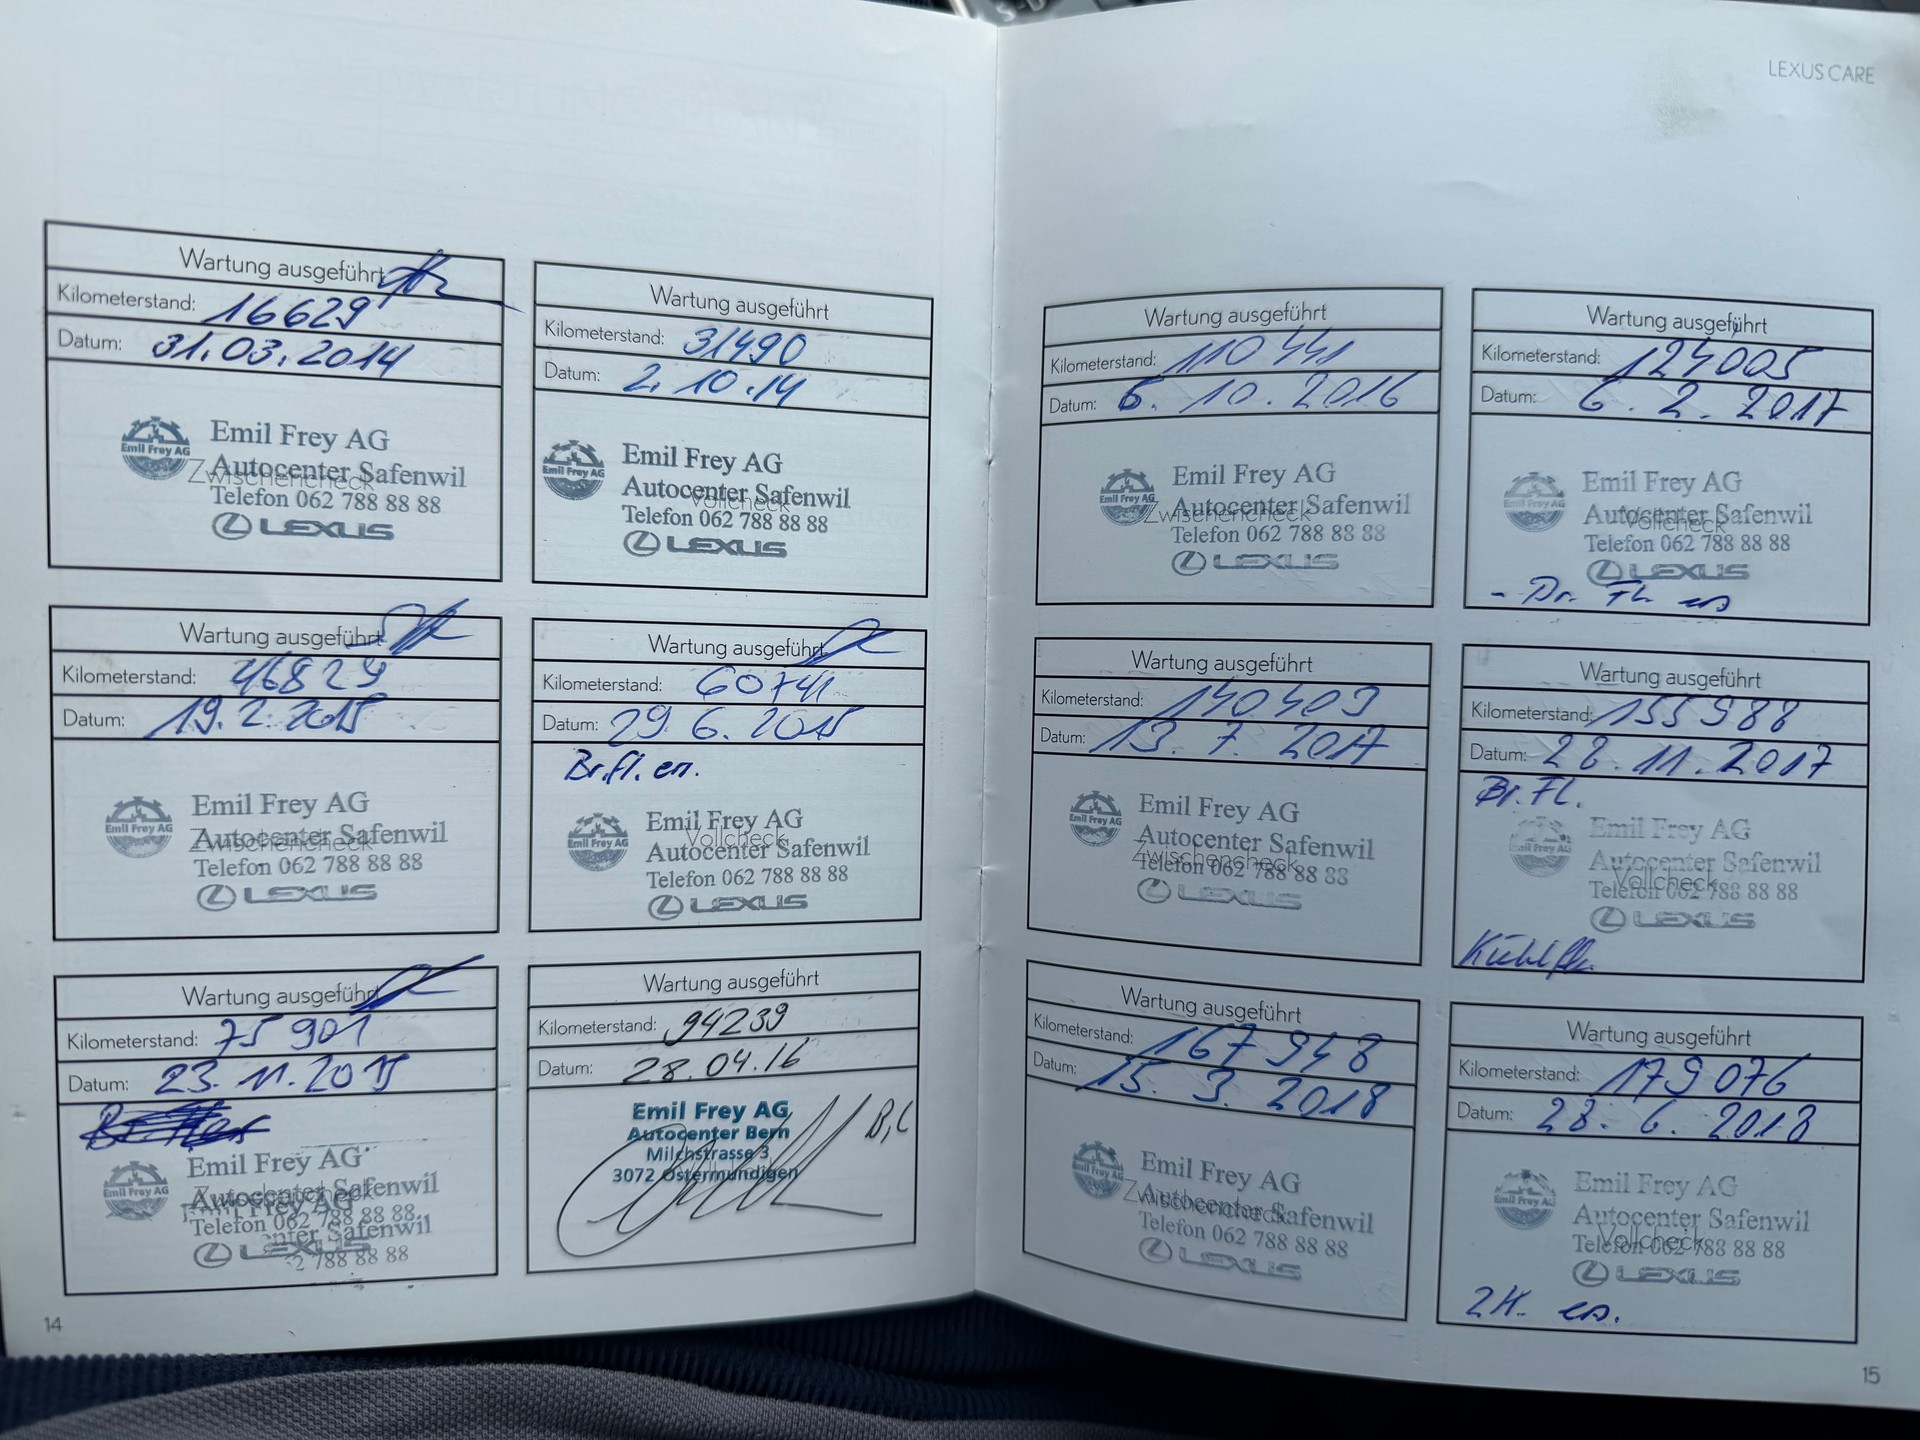 LEXUS CARE
Wartung ausgeführt
Kilometerstand: 16629
Datum: 31.03.2014
Emil Frey AG
Emil Frey AG
Autocenter Safenwil
Zwischencheck
Telefon 062 788 88 88
LEXUS
Wartung ausgeführt
Kilometerstand: 31490
Datum: 2.10.14
Emil Frey AG
Emil Frey AG
Autocenter Safenwil
Vollcheck
Telefon 062 788 88 88
LEXUS
Wartung ausgeführt
Kilometerstand: 46829
Datum: 19.2.2015
Emil Frey AG
Emil Frey AG
Autocenter Safenwil
Zwischencheck
Telefon 062 788 88 88
LEXUS
Wartung ausgeführt
Kilometerstand: 60741
Datum: 29.6.2015
Br.fl. en.
Emil Frey AG
Emil Frey AG
Vollcheck
Autocenter Safenwil
Telefon 062 788 88 88
LEXUS
Wartung ausgeführt
Kilometerstand: 75901
Datum: 23.11.2015
Emil Frey AG
Emil Frey AG
Autocenter Safenwil
Zwischencheck
Emil Frey AG
Telefon 062 788 88 88
Safenwil
LEXUS
788 88 88
Wartung ausgeführt
Kilometerstand: 94239
Datum: 28.04.16
Emil Frey AG
Autocenter Bern
Milchstrasse 3
3072 Ostermundigen
14
Wartung ausgeführt
Kilometerstand: 110441
Datum: 6.10.2016
Emil Frey AG
Emil Frey AG
Autocenter Safenwil
Zwischencheck
Telefon 062 788 88 88
LEXUS
Wartung ausgeführt
Kilometerstand: 124005
Datum: 6.2.2017
Emil Frey AG
Emil Frey AG
Autocenter Safenwil
Vollcheck
Telefon 062 788 88 88
LEXUS
Wartung ausgeführt
Kilometerstand: 140409
Datum: 13.7.2017
Emil Frey AG
Emil Frey AG
Autocenter Safenwil
Zwischencheck
Telefon 062 788 88 88
LEXUS
Wartung ausgeführt
Kilometerstand: 155988
Datum: 28.11.2017
Br.Fl.
Emil Frey AG
Emil Frey AG
Autocenter Safenwil
Vollcheck
Telefon 062 788 88 88
LEXUS
Wartung ausgeführt
Kilometerstand: 167948
Datum: 15.3.2018
Emil Frey AG
Emil Frey AG
Autocenter Safenwil
Zwischencheck
Telefon 062 788 88 88
LEXUS
Wartung ausgeführt
Kilometerstand: 179076
Datum: 28.6.2018
Emil Frey AG
Emil Frey AG
Autocenter Safenwil
Vollcheck
Telefon 062 788 88 88
LEXUS
15